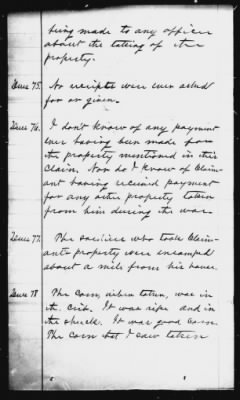 being made to any officer
about the taking of the
property.
Ques 75. No receipts were ever asked
for or given.
Ques 76. I don't know of any payment
ever having been made for
the property mentioned in this
Claim. Nor do I know of Claim-
ant having received payment
for any other property taken
from him during the war.
Ques 77. The soldiers who took Claim-
ants property were encamped
about a mile from his house.
Ques 78 The corn, when taken, was in
the crib. It was ripe and in
the shuck. It was good corn.
The corn that I saw taken